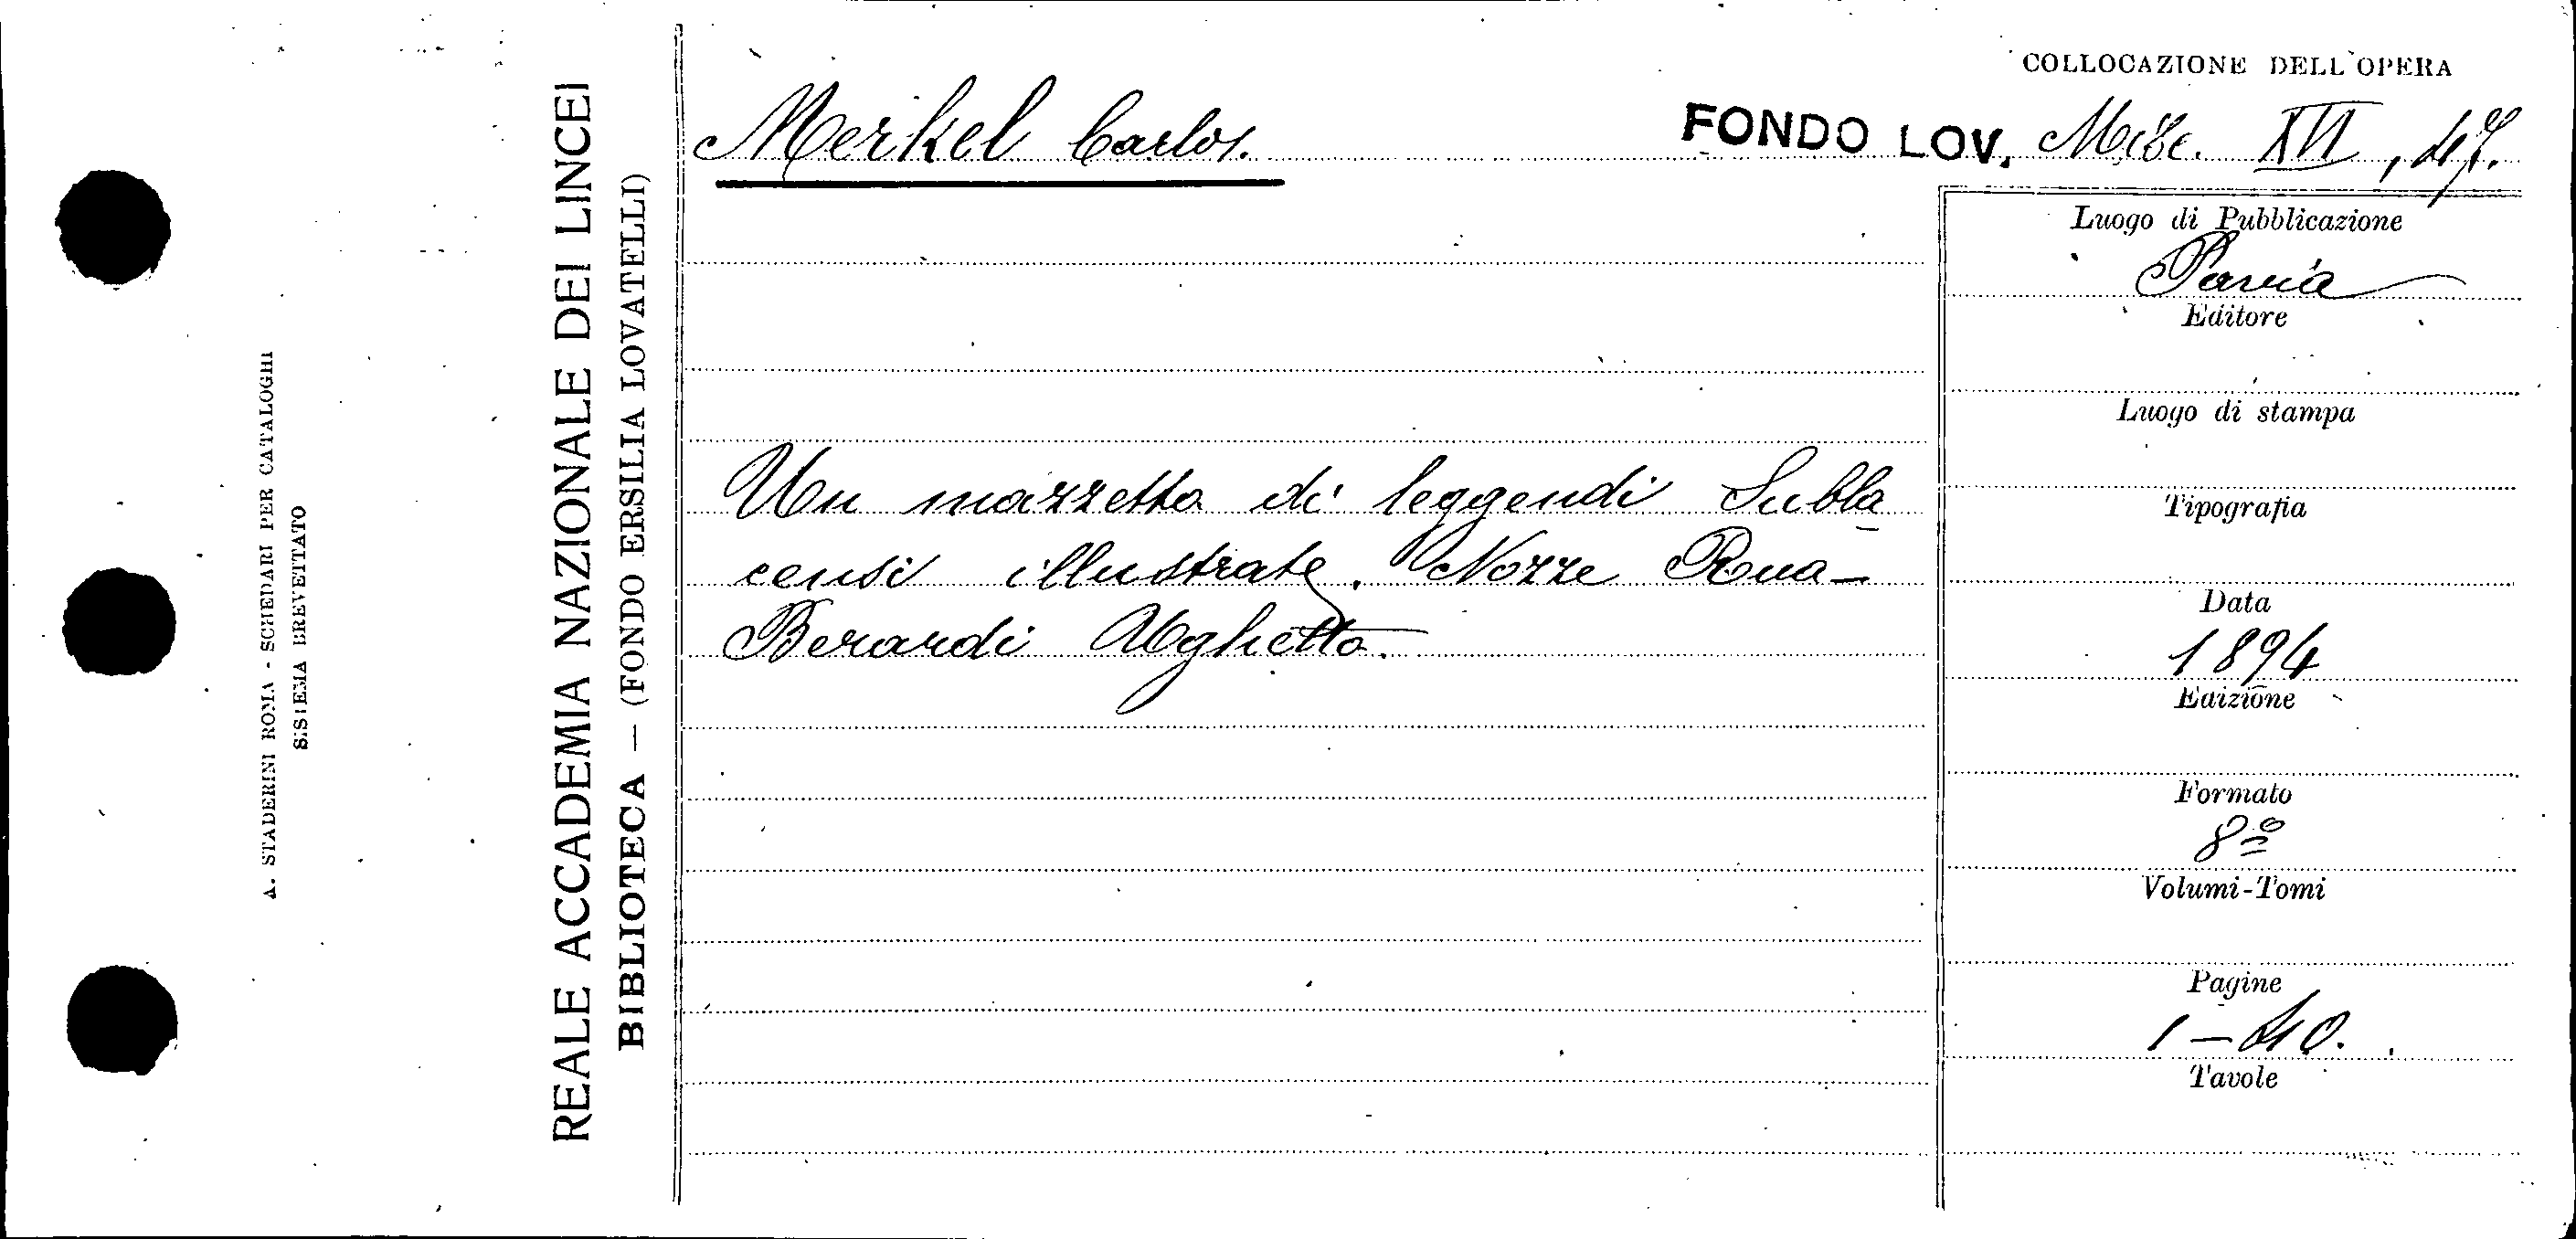 COLLOCAZIONE DELL'OPERA
Merkel Carlos.
FONDO LOV. Misc. XVI, 47.
Un mazzetto di leggendi Subla
censi illustrate. Nozze Rua-
Berardi Ughetto.
Luogo di Pubblicazione
Pavia
Editore
Luogo di stampa
Tipografia
Data
1894
Edizione
Formato
8º
Volumi-Tomi
Pagine
1-40.
Tavole
REALE ACCADEMIA NAZIONALE DEI LINCEI
BIBLIOTECA — (FONDO ERSILIA LOVATELLI)
A. STADERINI ROMA - SCHEDARI PER CATALOGHI
SISTEMA BREVETTATO